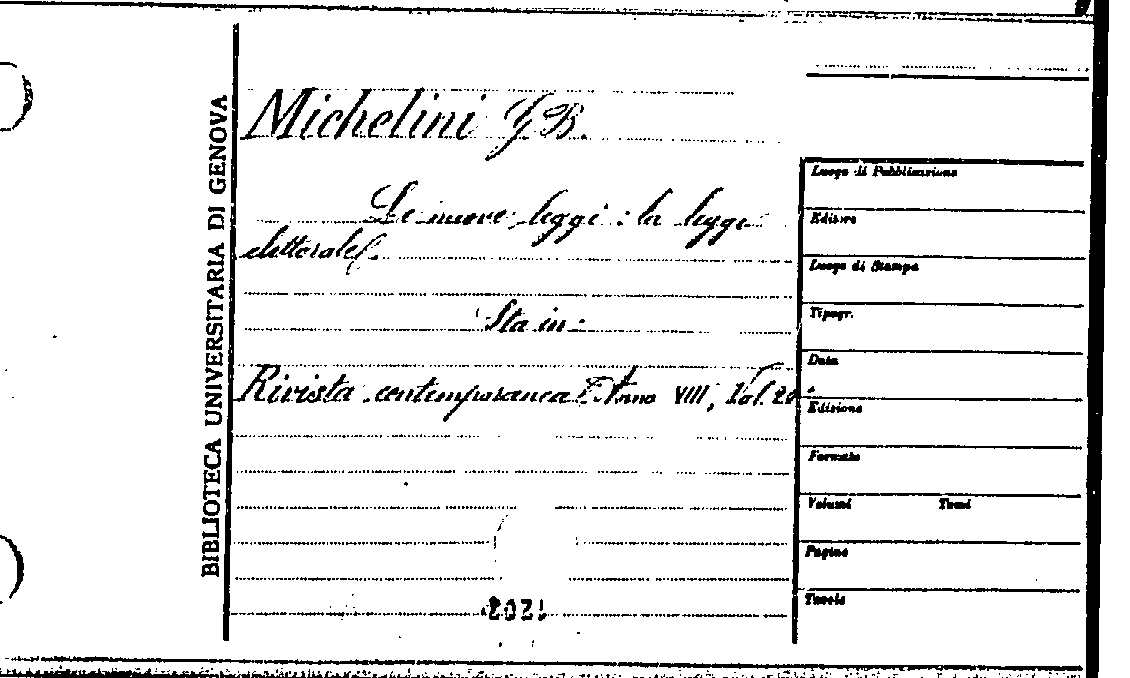 BIBLIOTECA UNIVERSITARIA DI GENOVA
Michelini G B.
Le nuove leggi: la legge
elettorale.
Sta in:
Rivista contemporanea. Anno VIII, Vol. 20.
Luogo di Pubblicazione
Editore
Luogo di Stampa
Tipogr.
Data
Edizione
Formato
Volumi Tomi
Pagine
Tavole